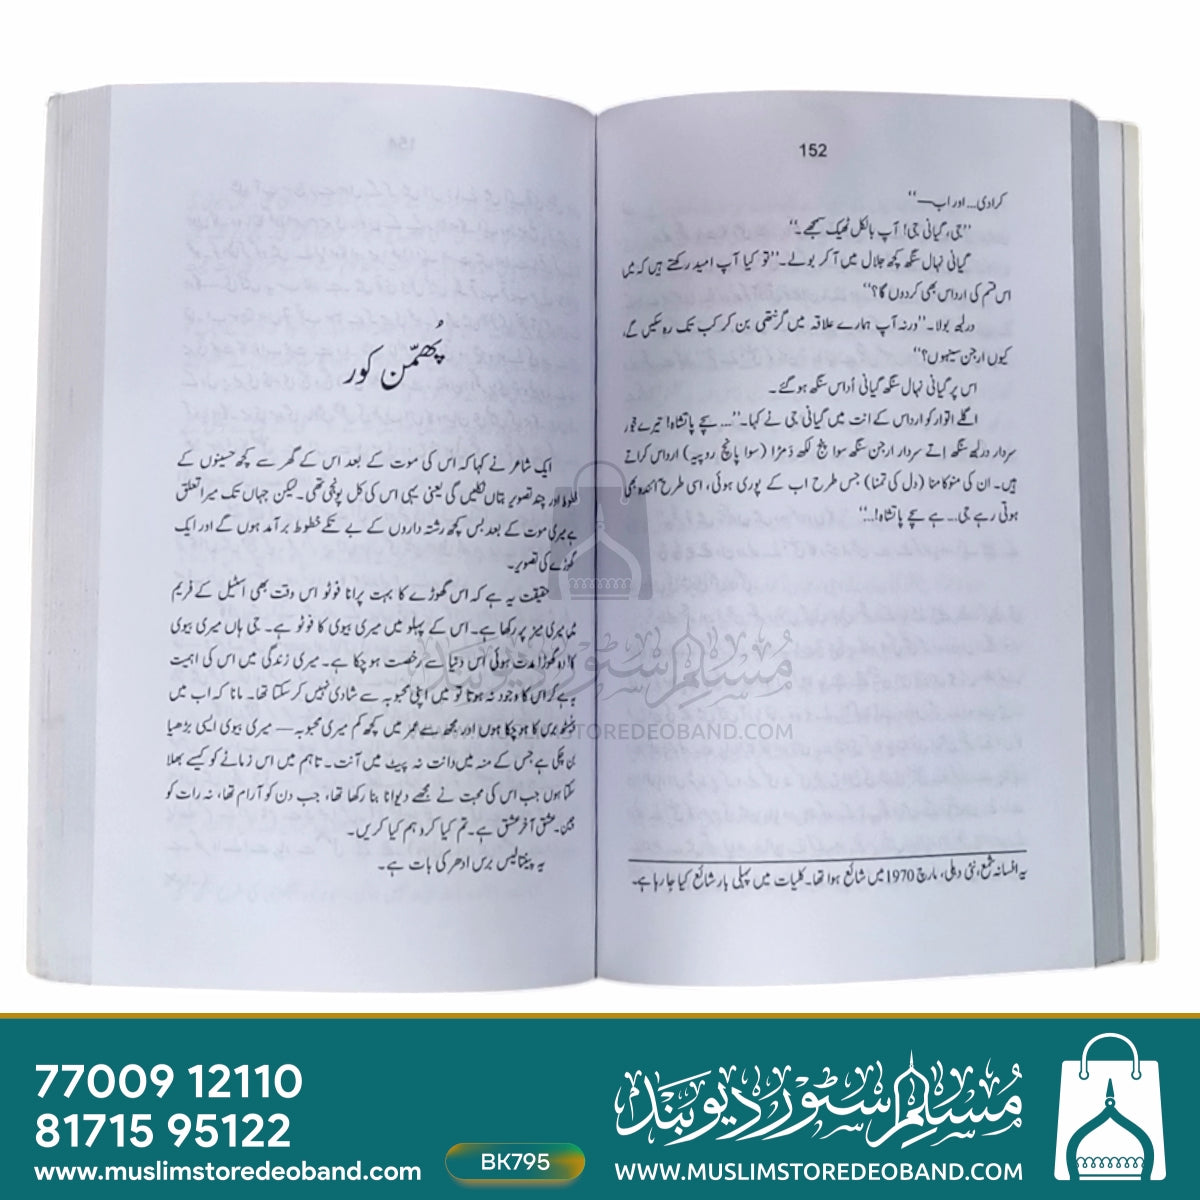 152
کرادی... اور اب—‘‘
’’جی، گیانی جی! آپ بالکل ٹھیک سمجھے۔‘‘
گیانی نہال سنگھ کچھ جلال میں آ کر بولے۔ ’’تو کیا آپ امید رکھتے ہیں کہ میں
اس قسم کی ارداس بھی کردوں گا؟‘‘
درلبھ بولا۔ ’’ورنہ آپ ہمارے علاقہ میں گرنتھی بن کر کب تک رہ سکیں گے،
کیوں ارجن سیہوں؟‘‘
اس پر گیانی نہال سنگھ گیانی اُداس سنگھ ہوگئے۔
اگلے اتوار کو ارداس کے انت میں گیانی جی نے کہا۔ ’’...سچے پاتشاہ! تیرے حضور
سردار درلبھ سنگھ اتے سردار ارجن سنگھ سوا پنج لکھ دَمڑا (سوا پانچ روپیہ) ارداس کراتے
ہیں۔ ان کی منوکامنا (دل کی تمنا) جس طرح اب کے پوری ہوئی، اسی طرح آئندہ بھی
ہوتی رہے جی... ہے سچے پاتشاہ!...‘‘
یہ افسانہ شمع، نئی دہلی، مارچ 1970 میں شائع ہوا تھا۔ کلیات میں پہلی بار شائع کیا جا رہا ہے۔
پھُمّن کور
ایک شاعر نے کہا کہ اس کی موت کے بعد اس کے گھر سے کچھ حسینوں کے
خطوط اور چند تصویر بتاں نکلیں گی یعنی یہی اس کی کل پونجی تھی۔ لیکن جہاں تک میرا تعلق
ہے میری موت کے بعد بس کچھ رشتہ داروں کے بے تکے خطوط برآمد ہوں گے اور ایک
گھوڑے کی تصویر۔
حقیقت یہ ہے کہ اس گھوڑے کا بہت پرانا فوٹو اس وقت بھی اسٹیل کے فریم
میں میری میز پر رکھا ہے۔ اس کے پہلو میں میری بیوی کا فوٹو ہے۔ جی ہاں میری بیوی
کا! وہ گھوڑا مدت ہوئی اس دنیا سے رخصت ہو چکا ہے۔ میری زندگی میں اس کی اہمیت
یہ ہے کہ اگر اس کا وجود نہ ہوتا تو میں اپنی محبوبہ سے شادی نہیں کر سکتا تھا۔ مانا کہ اب میں
برس کا ہو چکا ہوں اور مجھ سے عمر میں کچھ کم میری محبوبہ— میری بیوی ایسی بڑھیا
بن چکی ہے جس کے منہ میں دانت نہ پیٹ میں آنت۔ تاہم میں اس زمانے کو کیسے بھلا
سکتا ہوں جب اس کی محبت نے مجھے دیوانا بنا رکھا تھا، جب دن کو آرام تھا، نہ رات کو
چین۔ عشق آخر عشق ہے۔ تم کیا کرو ہم کیا کریں۔
یہ پینتالیس برس ادھر کی بات ہے۔
مُسلِم سٹور دیوبَند
WWW.MUSLIMSTOREDEOBAND.COM
77009 12110
81715 95122
www.muslimstoredeoband.com
BK795
مُسلِم سٹور دیوبَند
WWW.MUSLIMSTOREDEOBAND.COM